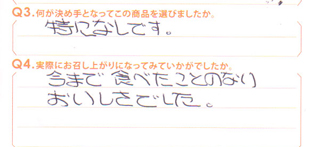 Q3.何が決め手となってこの商品を選びましたか。
特になしです。
Q4.実際にお召し上がりになってみていかがでしたか。
今まで食べたことのない
おいしさでした。